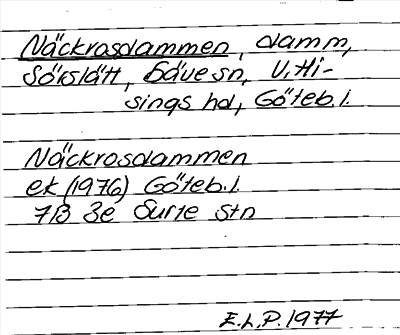 Näckrosdammen, damm,
Sörslätt, Säve sn, V. Hi-
sings hd, Göteb. l.
Näckrosdammen
ek (1976) Göteb. l.
7B 3e Surte stn
E.L.P. 1977